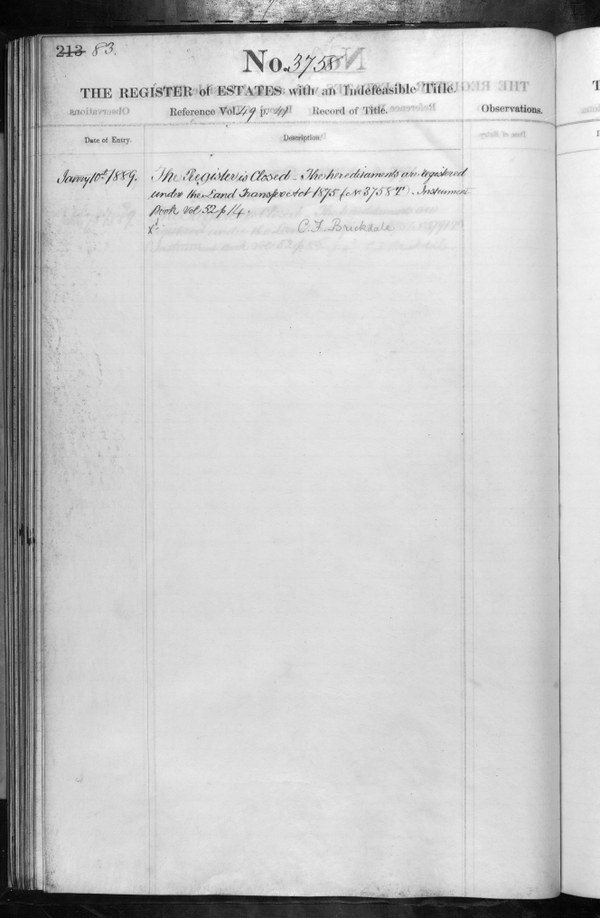 213 83.
No. 3758
THE REGISTER of ESTATES with an Indefeasible Title.
Reference Vol. 49 p. Record of Title. Observations.
Date of Entry. Description.
Janry 10th 1889. The Register is Closed - The hereditaments are registered
under the Land Transfer Act 1875 (No 3758 T) - Instrument
Book vol 52 p 14.
C. F. Brickdale